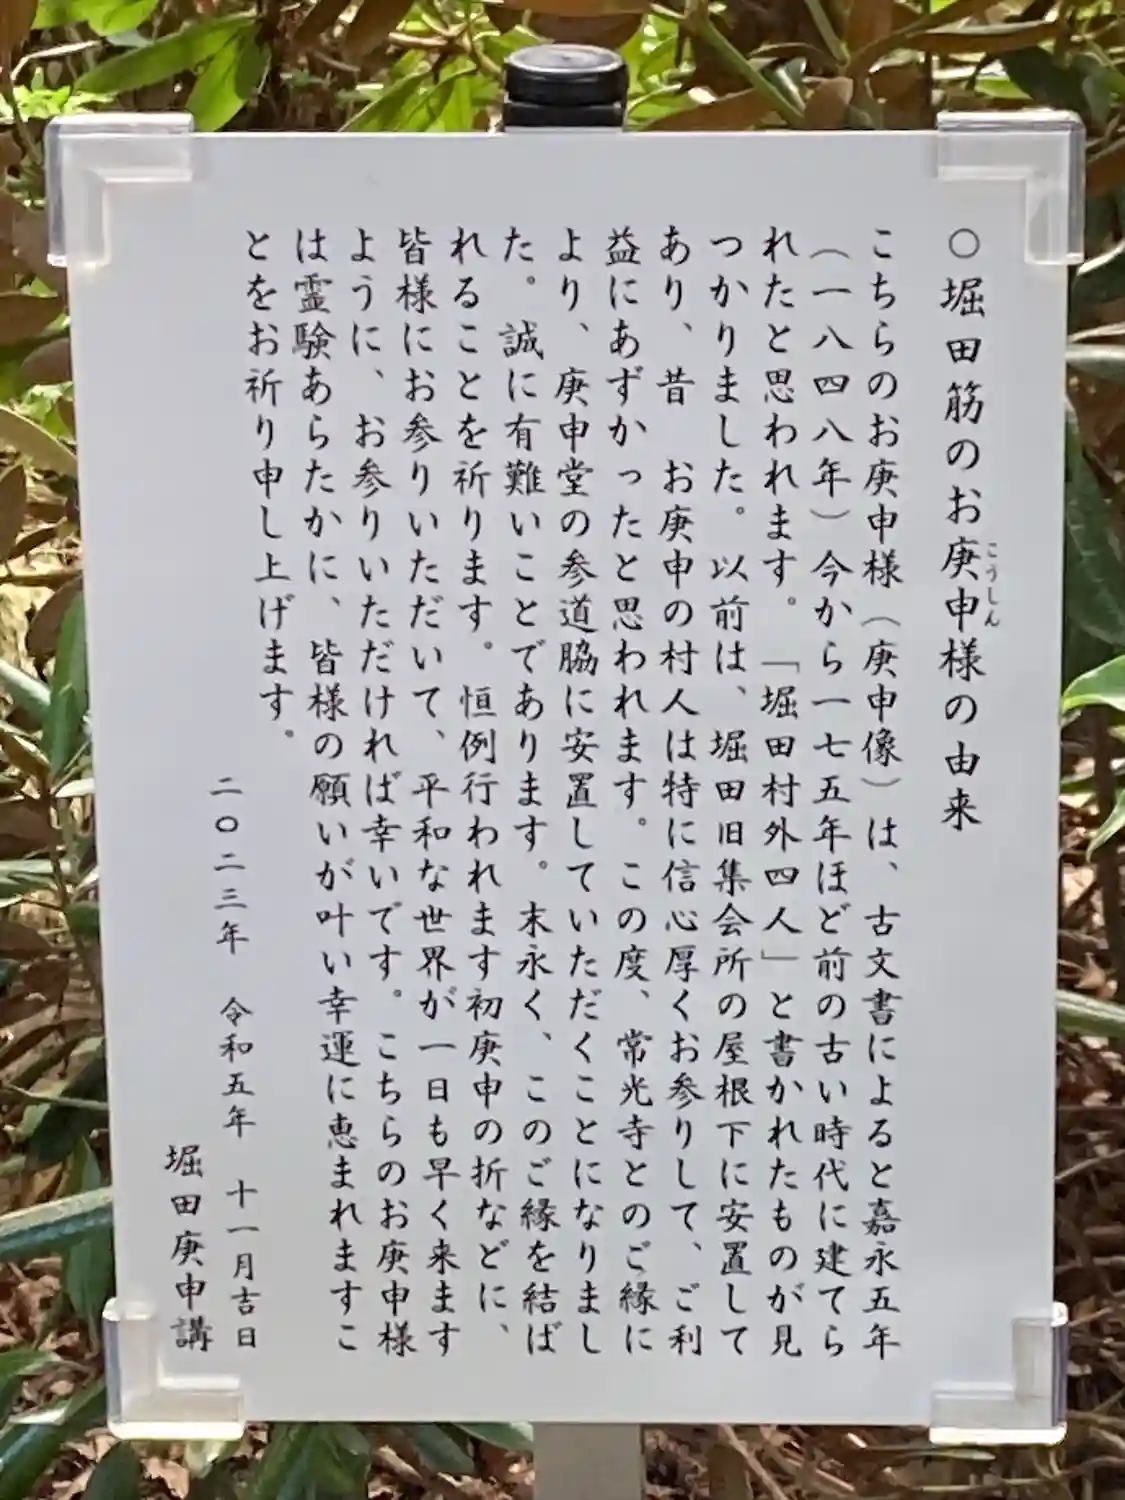 ○堀田筋のお庚申様の由来
こうしん
こちらのお庚申様（庚申像）は、古文書によると嘉永五年
（一八四八年）今から一七五年ほど前の古い時代に建てら
れたと思われます。「堀田村外四人」と書かれたものが見
つかりました。以前は、堀田旧集会所の屋根下に安置して
あり、昔　お庚申の村人は特に信心厚くお参りして、ご利
益にあずかったと思われます。この度、常光寺とのご縁に
より、庚申堂の参道脇に安置していただくことになりまし
た。誠に有難いことであります。末永く、このご縁を結ば
れることを祈ります。恒例行われます初庚申の折などに、
皆様にお参りいただいて、平和な世界が一日も早く来ます
ように、お参りいただければ幸いです。こちらのお庚申様
は霊験あらたかに、皆様の願いが叶い幸運に恵まれますこ
とをお祈り申し上げます。
二〇二三年　令和五年　十一月吉日
堀田庚申講